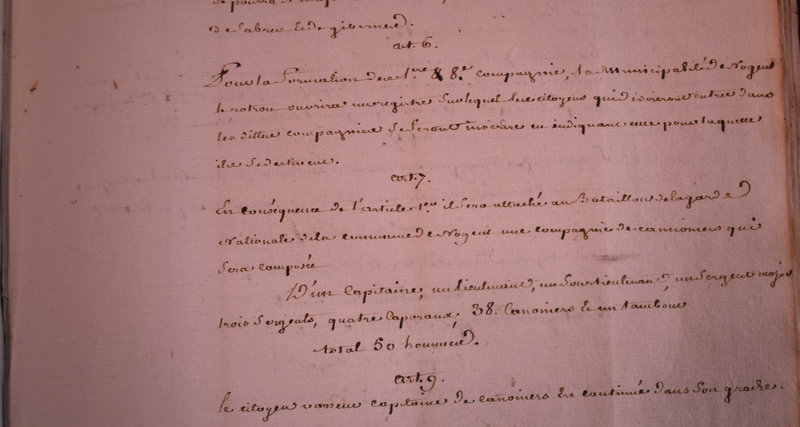 de Sabres & de gibernes.
art. 6.
Pour la Formation des 1re & 8e compagnie, la Municipalité de Nogent
le rotrou ouvrira un registre Sur lequel les citoyens qui désireront entrer dans
les dittes compagnies Se feront inscrire en indiquant celle pour laquelle
ils Se destinent.
art. 7.
En conséquence de l'article 1er il Sera attaché au Bataillon de la garde
Nationale de la commune de Nogent une compagnie de cannoniers qui
Sera composée
D'un Capitaine, un lieutenant, un Sous lieutenant, un Sergent major
trois Sergents, quatre Caporaux, 38. Canoniers & un tambour
total 50 hommes.
art. 9.
le citoyen capitaine de canoniers Est continué dans Son grade.